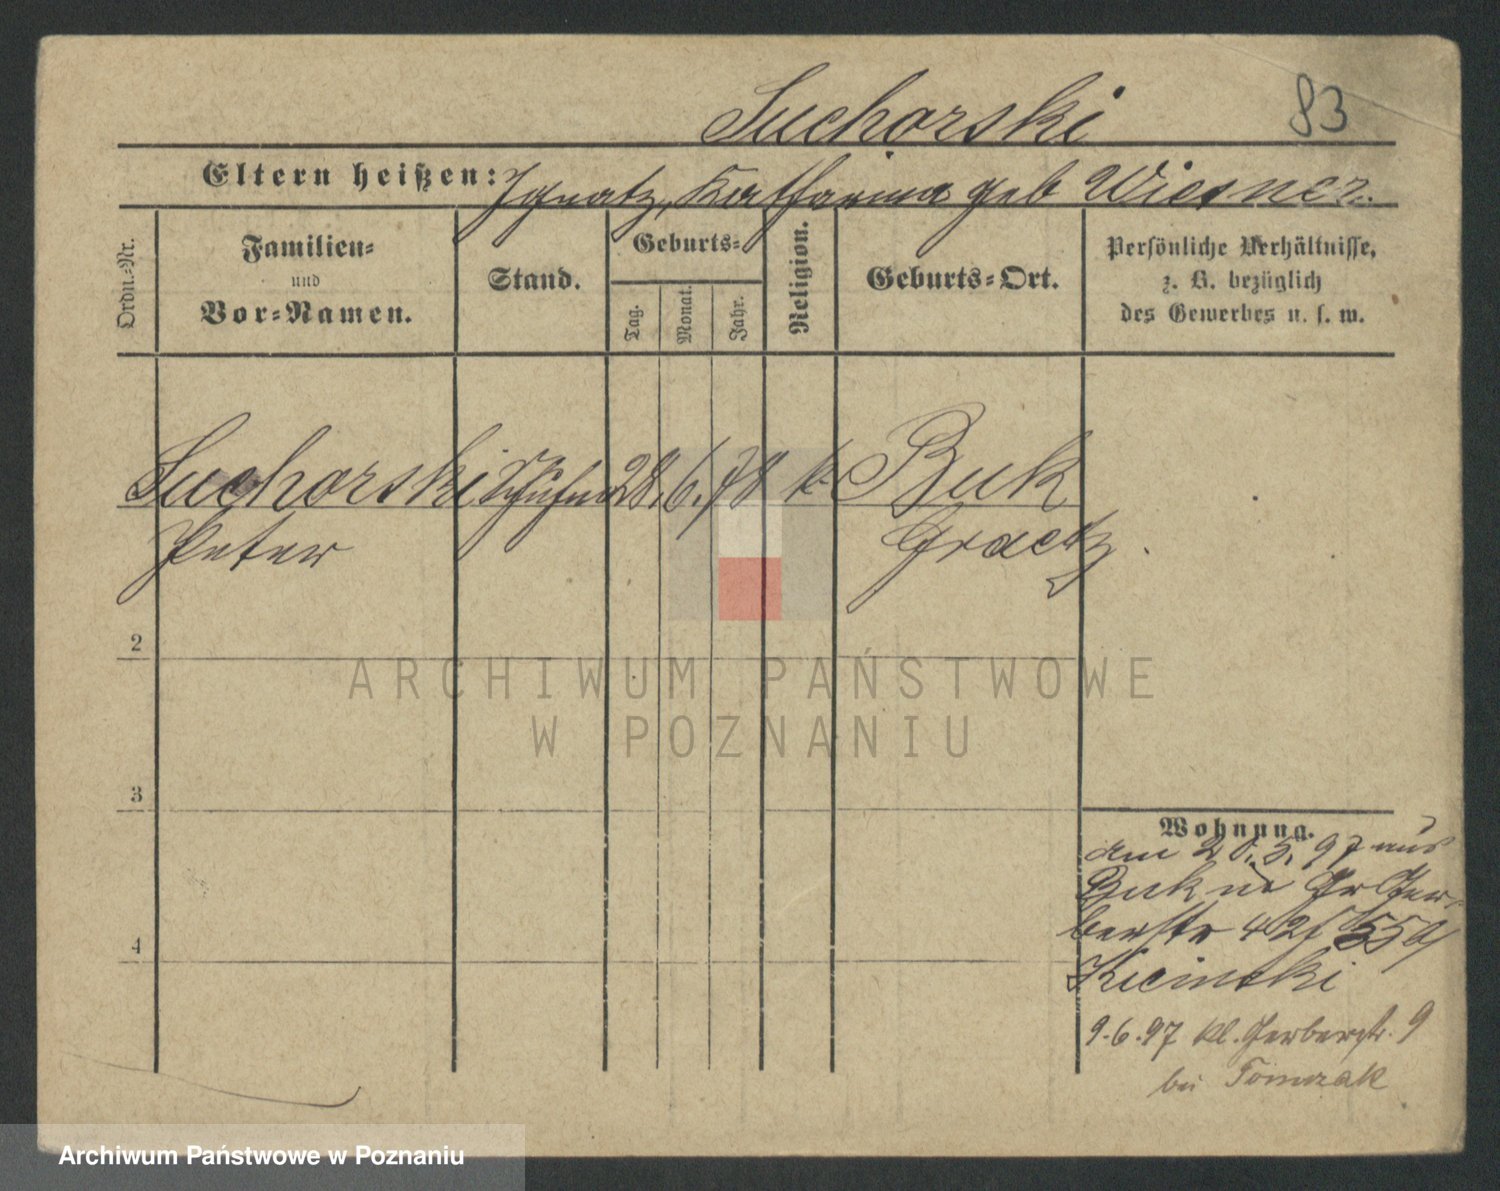 Suchorski
83
Eltern heißen: Ignatz, Katharina geb Wiesner.
Ordn.-Nr.
Familien-
und
Vor-Namen.
Stand.
Geburts-
Tag.
Monat.
Jahr.
Religion.
Geburts-Ort.
Persönliche Verhältnisse,
z. B. bezüglich
des Gewerbes u. s. w.
Suchorski 28. 6. 78 k. Buk
Peter Graetz
2
3
4
ARCHIWUM PAŃSTWOWE
W POZNANIU
Wohnung.
am 20.5.97 aus
Buk Gr Ger-
berstr 42
Kicinski
9.6.97 Kl. Gerberstr. 9
bei Tomczak
Archiwum Państwowe w Poznaniu